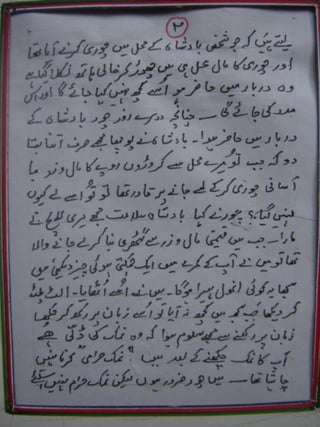 ۲
لیتے ہیں کہ جو شخص بادشاہ کے محل میں چوری کرنے آیا تھا
اور چوری کا مال محل ہی میں چھوڑ کر خالی ہاتھ نکل گیا ہے
وہ دربار میں حاضر ہو اسے کچھ نہیں کہا جائے گا اور اس
مدد کی جائے گی ۔ چنانچہ دوسرے روز چور بادشاہ کے
دربار میں حاضر ہوا۔ بادشاہ نے پوچھا مجھے صرف اتنا بتا
دو کہ جب تو میرے محل سے کروڑوں روپے کا مال و زر با
آسانی چوری کر کے لے جانے پر قادر تھا تو تو اسے لے کیوں
نہیں گیا؟ چور نے کہا بادشاہ سلامت مجھے میری طمع نے
مارا۔ جب میں قیمتی مال و زر سے گٹھڑی بنا کر لے جانے والا
تھا تو میں نے آپ کے کمرے میں ایک چمکتی ہوئی چیز دیکھی میں
سمجھا یہ کوئی انمول ہیرا ہو گا۔ میں نے اسے اٹھایا۔ الٹ پلٹ
کر دیکھا جب سمجھ میں کچھ نہ آیا تو اسے زبان پر رکھ کر چکھا
زبان پر رکھنے سے مجھے معلوم ہوا کہ وہ نمک کی ڈلی ہے
آپ کا نمک چکھنے کے بعد میں "نمک حرامی" کرنا نہیں
چاہتا تھا ۔ میں چور ضرور ہوں لیکن نمک حرام نہیں اسلئے